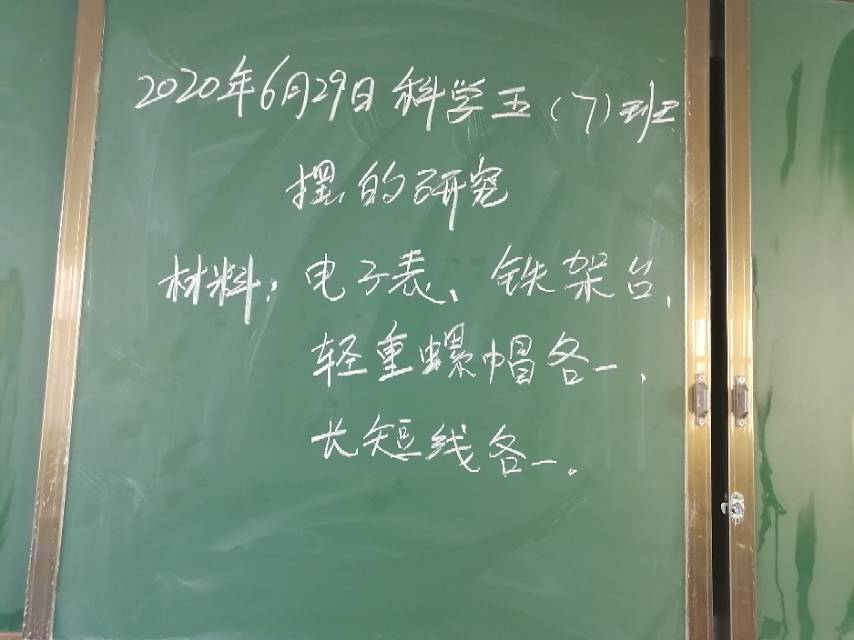 2020年6月29日科学五（7）班
摆的研究
材料：电子表、铁架台、
轻重螺帽各一、
长短线各一。